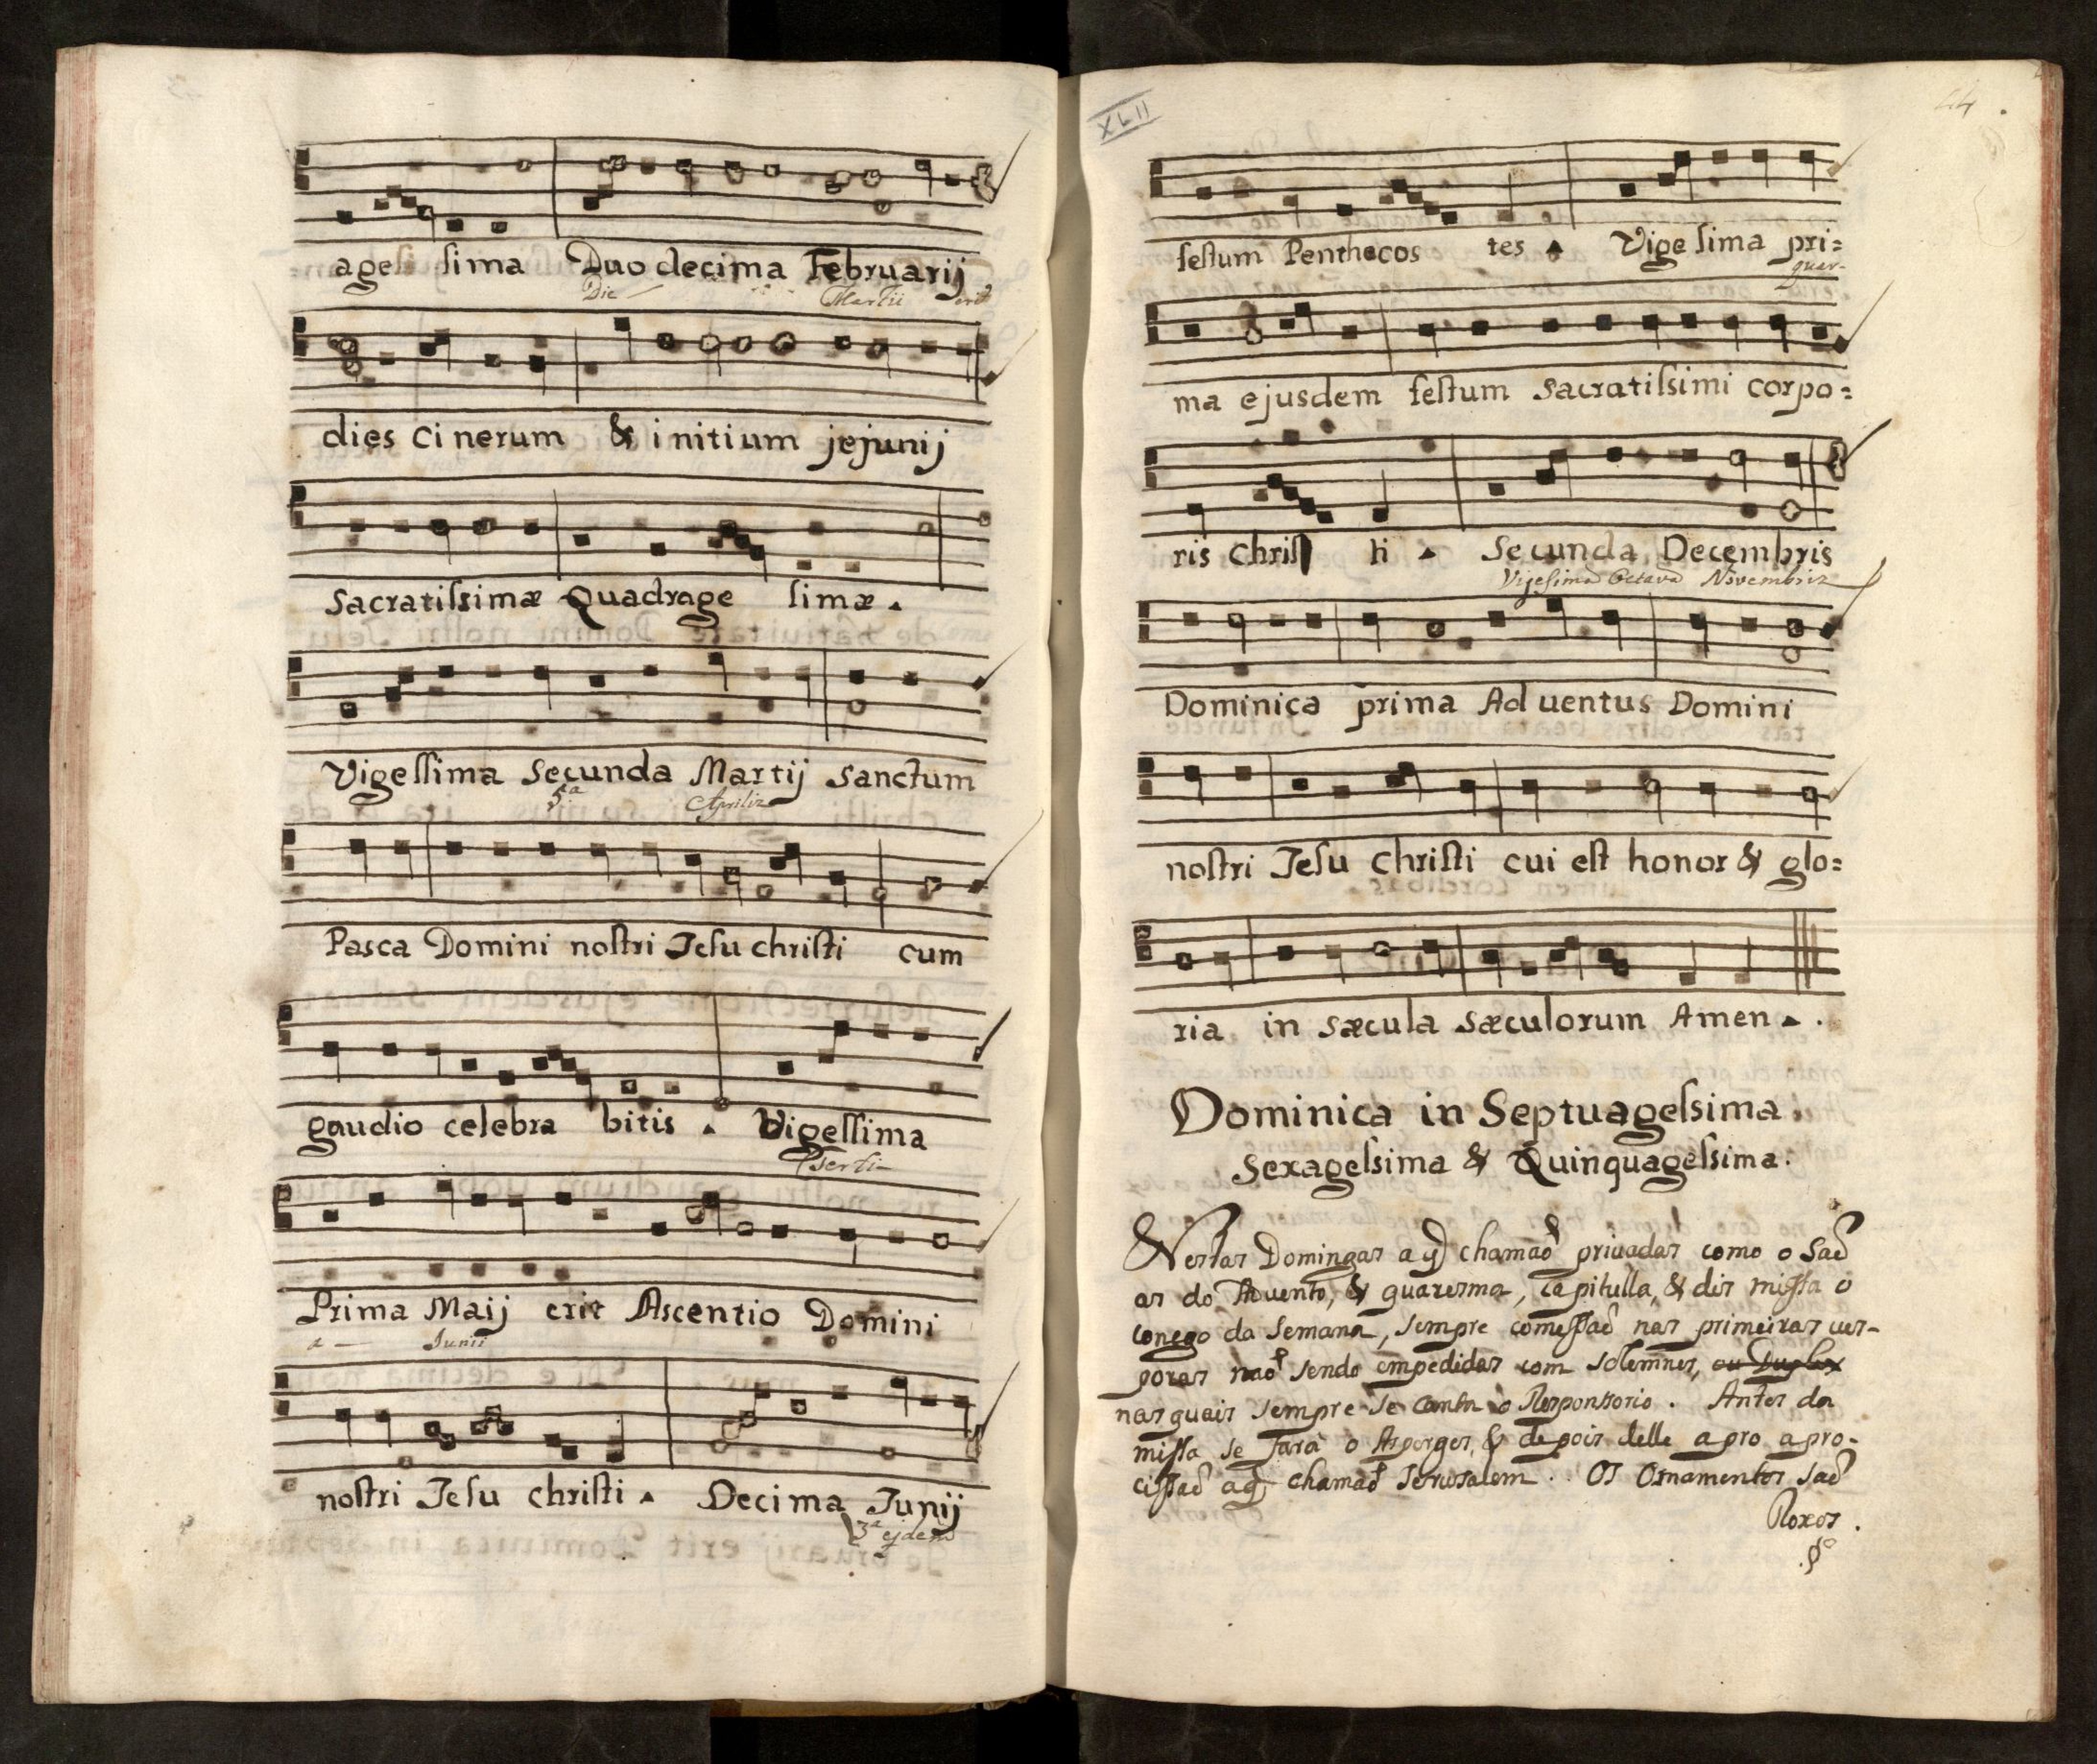 agessima Duodecima Februarij
Die Martii erit
dies Cinerum & initium jejunij
Sacratissimæ Quadragesimæ.
Vigessima Secunda Martij Sanctum
5.ª Aprilis
Pasca Domini nostri Jesu christi cum
gaudio celebrabitis. Vigessima
Prima Maij erit Ascentio Domini
Junii
nostri Jesu christi. Decima Junij
3ª ejdem
XLII
44
festum Penthecostes. Vigesima pri=
quar-
ma ejusdem festum Sacratissimi corpo=
ris Christi. Secunda Decembris
Vigesima Octava Novembris
Dominica prima Aduentus Domini
nostri Jesu Christi cui est honor & glo=
ria in sæcula sæculorum Amen.
Dominica in Septuagessima.
Sexagessima & Quinquagessima.
Nestas Domingas a q̃ chamaõ priuadas como o saõ
as do Aduento, & quaresma, Capitulla, & dis missa o
Conego da Semana, sempre comessaõ nas primeiras ues-
poras naõ sendo empedidas com solemnes, ou Duplex
nas quais sempre se canta o Responsorio. Antes da
missa se fará o Asperges, & depois delle a pro a pro-
cissaõ a q̃ chamaõ Jerusalem. Os Ornamentos saõ
Roxos.